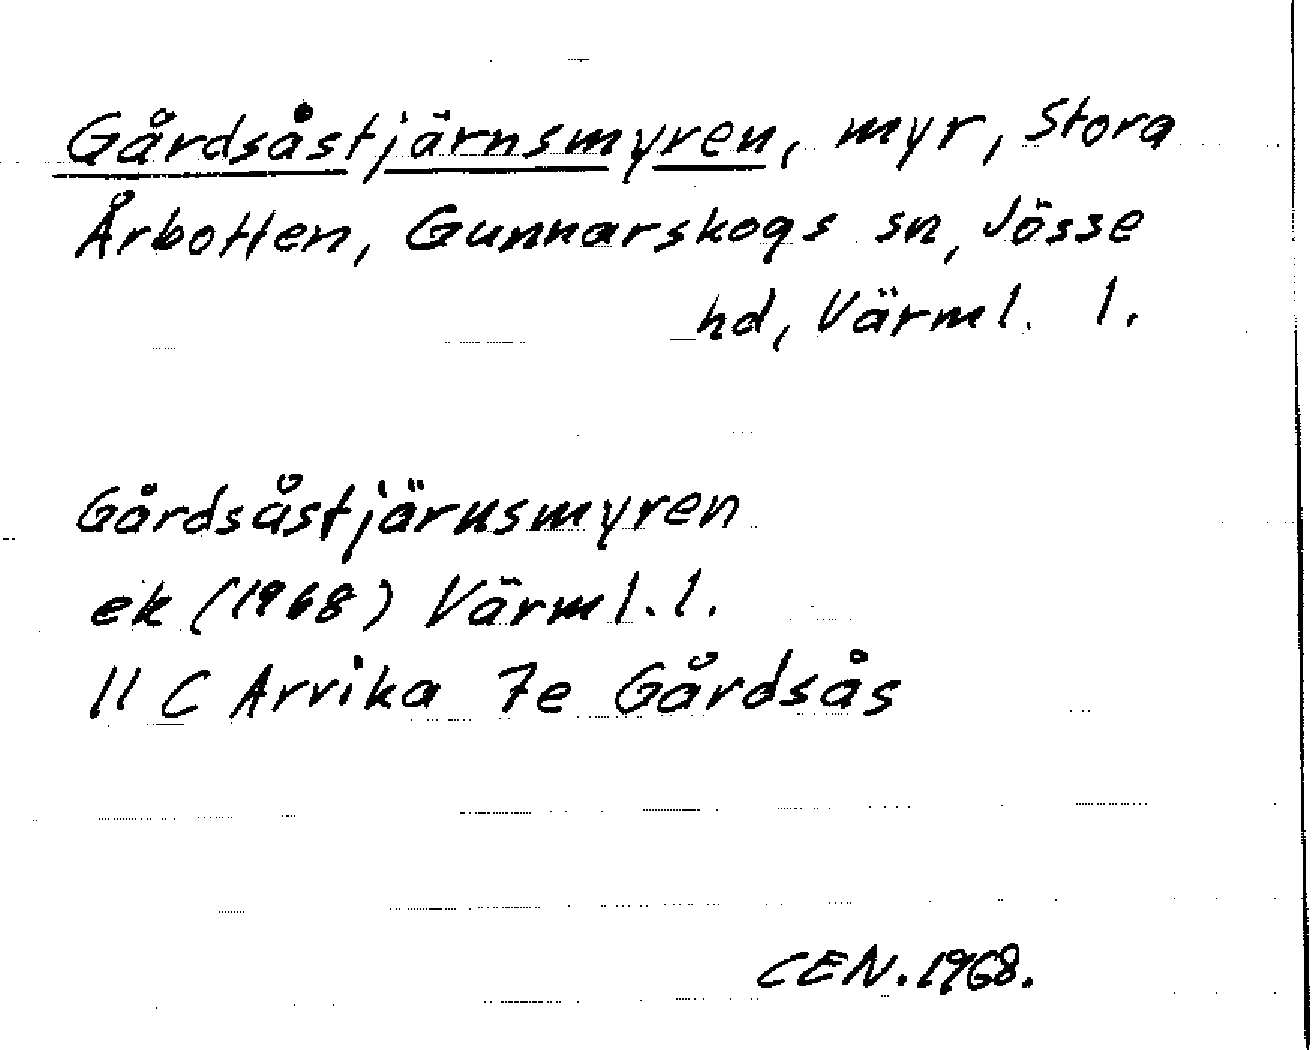 Gårdsåstjärnsmyren, myr, Stora
Årbotten, Gunnarskogs sn, Jösse
hd, Värml. l.
Gårdsåstjärnsmyren
ek (1968) Värml. l.
11 C Arvika 7e Gårdsås
CEN. 1968.